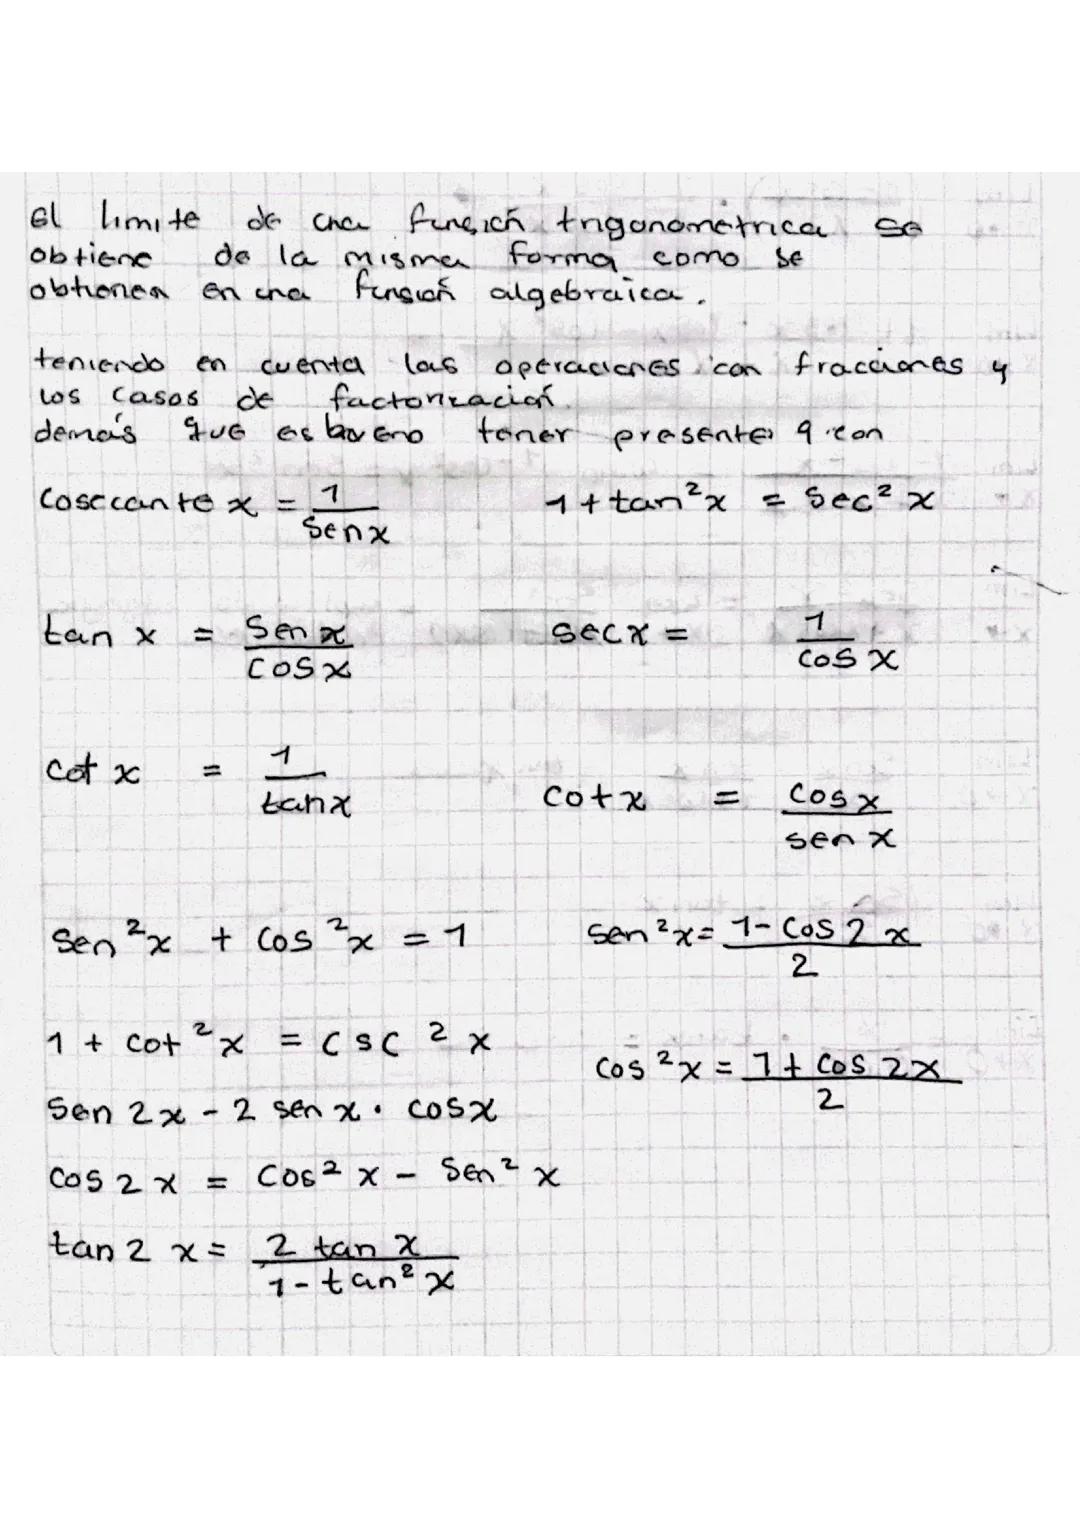 El limite de una función trigonometrica se
obtiene de la misma forma como se
obtienen en una funsion algebraica.
teniendo en cuenta las operaciones con fracciones y
los casos de factorización.
demás que es bueno tener presente q con
Cosecante x = 1/Sen x
1 + tan²x = Sec² x
tan x = Sen x/Cos x
Sec x = 1/Cos x
Cot x = 1/tan x
Cot x = Cos x/sen x
Sen²x + Cos²x = 1
Sen²x = 1 - Cos 2x/2
1 + Cot²x = CSC²x
Cos²x = 1 + Cos 2x/2
Sen 2x - 2 sen x · cosx
Cos 2x = Cos² x - Sen² x
tan 2 x = 2 tan x/1 - tan² x